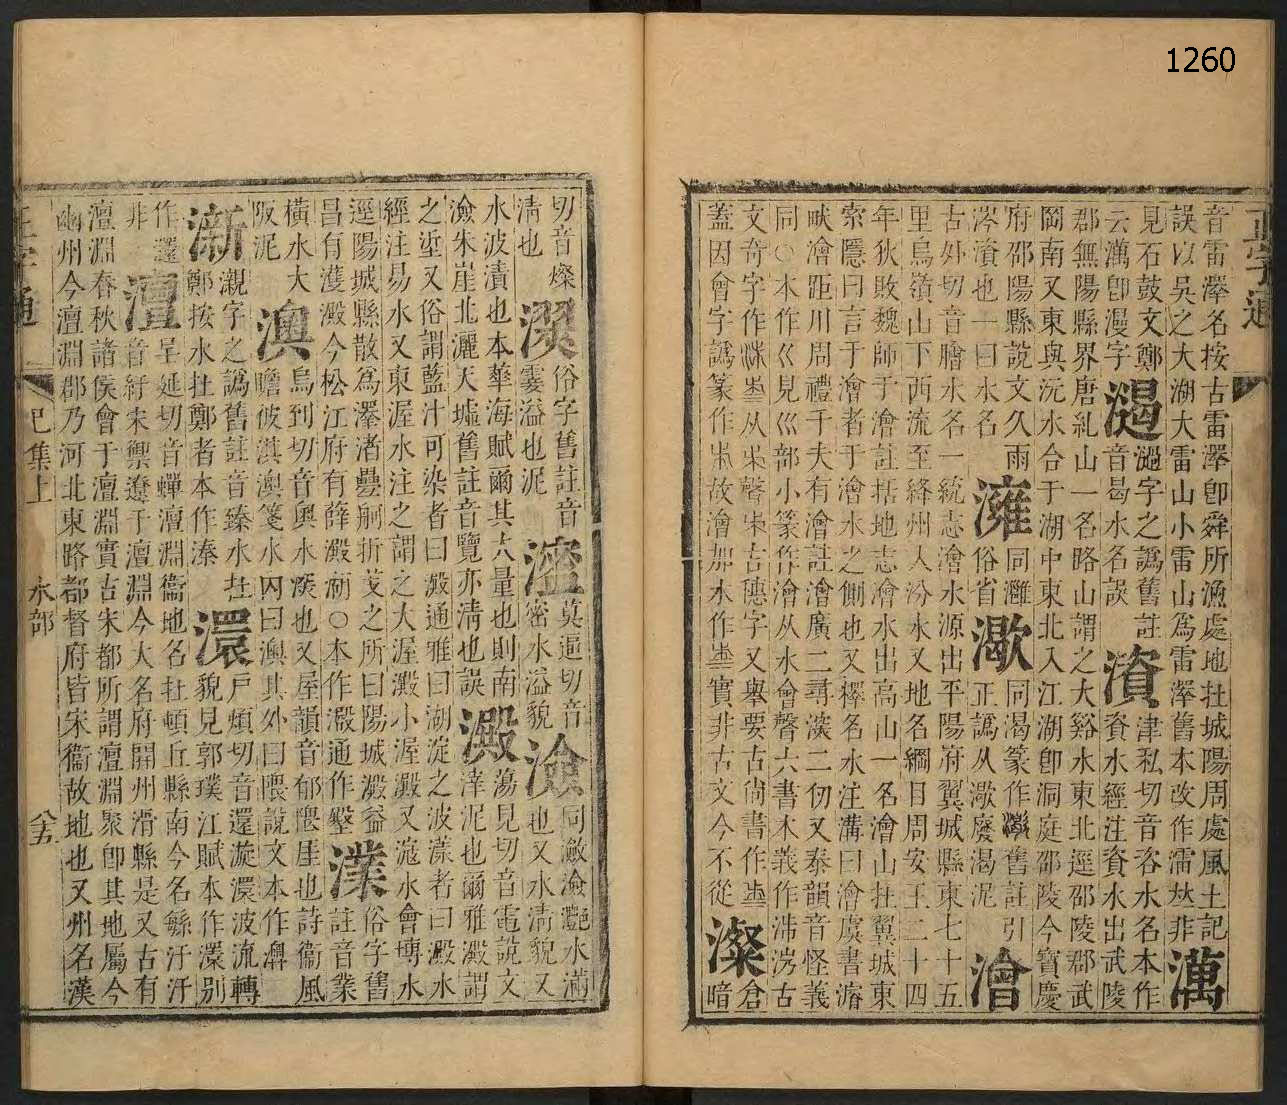 1260
正字通
音雷澤名按古雷澤卽舜所漁處地在城陽周處風土記
誤以吳之大湖大雷山小雷山爲雷澤舊本改作濡𠀤非 澫
見石鼓文鄭
云澫卽漫字 濄 濄字之譌舊註
音曷水名誤 澬 津私切音咨水名本作
資水經注資水出武陵
郡無陽縣界唐糺山一名路山謂之大谿水東北逕邵陵郡武
岡南又東與沅水合于湖中東北入江湖卽洞庭邵陵今寶慶
府邵陽縣說文久雨
涔澬也一曰水名 澭 同灉
俗省 澉 同渴篆作舊註引
正譌从澉廢渴泥 澮
古外切音膾水名一統志澮水源出平陽府翼城縣東七十五
里烏嶺山下西流至絳州入汾水又地名綱目周安王二十四
年狄敗魏師于澮註括地志澮水出高山一名澮山在翼城東
索隱曰言于澮者于澮水之側也又釋名水注溝曰澮虞書濬
畎澮距川周禮千夫有澮註澮廣二尋深二仞又泰韻音怪義
同○本作巜見巜部小篆作澮从水會聲六書本義作沛涝古
文奇字作聲古穗字又舉要古尙書作
蓋因會字譌篆作故澮加水作實非古文今不從 澯 倉
暗
切音燦
淸也 濢 俗字舊註音
霎溢也泥 㵥 莫逼切音
密水溢貌 澰 同瀲澰灩水滿
也又水淸貌又
水波漬也木華海賦爾其大量也則南
澰朱崖北灑天墟舊註音覽亦淸也誤 澱 蕩見切音電說文
滓泥也爾雅澱謂
之垽又俗謂藍汁可染者曰澱通雅曰湖淀之波漾者曰澱水
經注易水又東渥水注之謂之大渥澱小渥澱又滱水會塼水
逕陽城縣散爲澤渚㽮䑩折芰之所曰陽城澱益
昌有濩澱今松江府有薛澱湖○本作澱通作墼 濮 俗字舊
註音業
橫水大
阪泥 澳 烏到切音奧水隈也又屋韻音郁隈厓也詩衞風
瞻彼淇澳箋水內曰澳其外曰隈說文本作澳
𣽎 親字之譌舊註音臻水在
鄭按水在鄭者本作溱 澴 戶煩切音還漩澴波流轉
貌見郭璞江賦本作澴別
作瀤
非 澶 呈延切音蟬澶淵衞地名在頓丘縣南今名繇汙汙
音紆宋禦遼于澶淵今大名府開州滑縣是又古有
澶淵春秋諸侯會于澶淵實古宋都所謂澶淵聚卽其地屬今
幽州今澶淵郡乃河北東路都督府皆宋衞故地也又州名漢
正字通 巳集上 水部 八十五